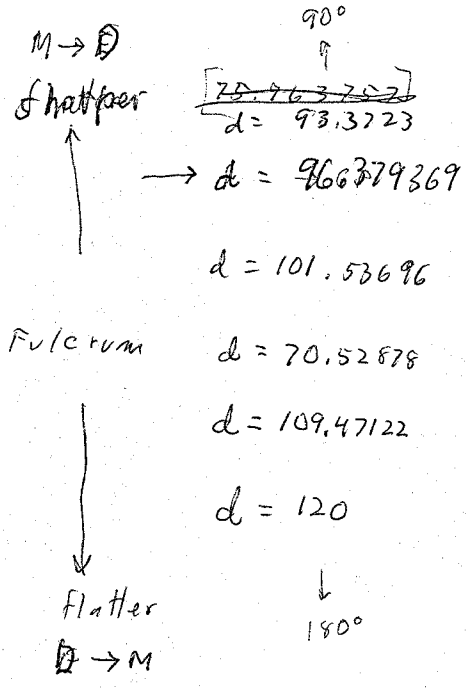 90°
M → D
Sharper
[75.963757]
d = 93.3723
→ d = 966379369
d = 101.53696
Fulcrum
d = 70.52878
d = 109.47122
d = 120
flatter
180°
D → M